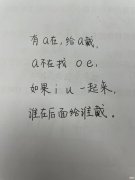 有a在,给a戴,
a不在找o e,
如果i u一起来,
谁在后面给谁戴。